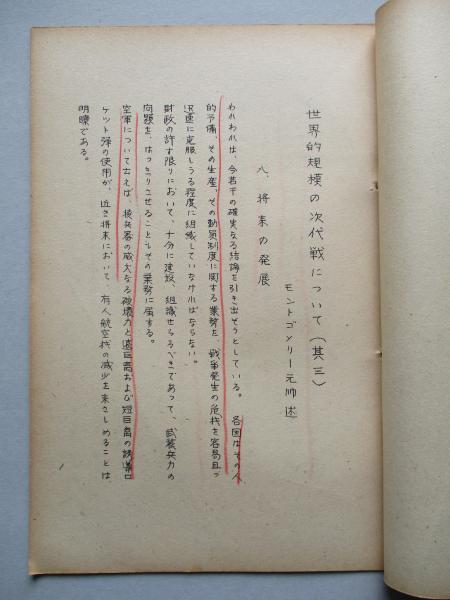 世界的規模の次代戦について（其三）
モントゴメリー元帥述
八、将来の発展
われわれは、今若干の確実なる結論を引き出そうとしている。各国はその人
的予備、その生産、その動員制度に関する業務を、戦争発生の危機を容易且つ
迅速に克服しうる程度に組織していなければならない。
財政の許す限りにおいて、十分に建設、組織せらるべきであって、武装兵力の
問題を、はっきりさせることもその業務に属する。
空軍について言えば、核兵器の威大なる破壊力と遠距离および短距离の誘導ロ
ケット弾の使用が、近き将来において、有人航空機の減少を来さしめることは
明瞭である。